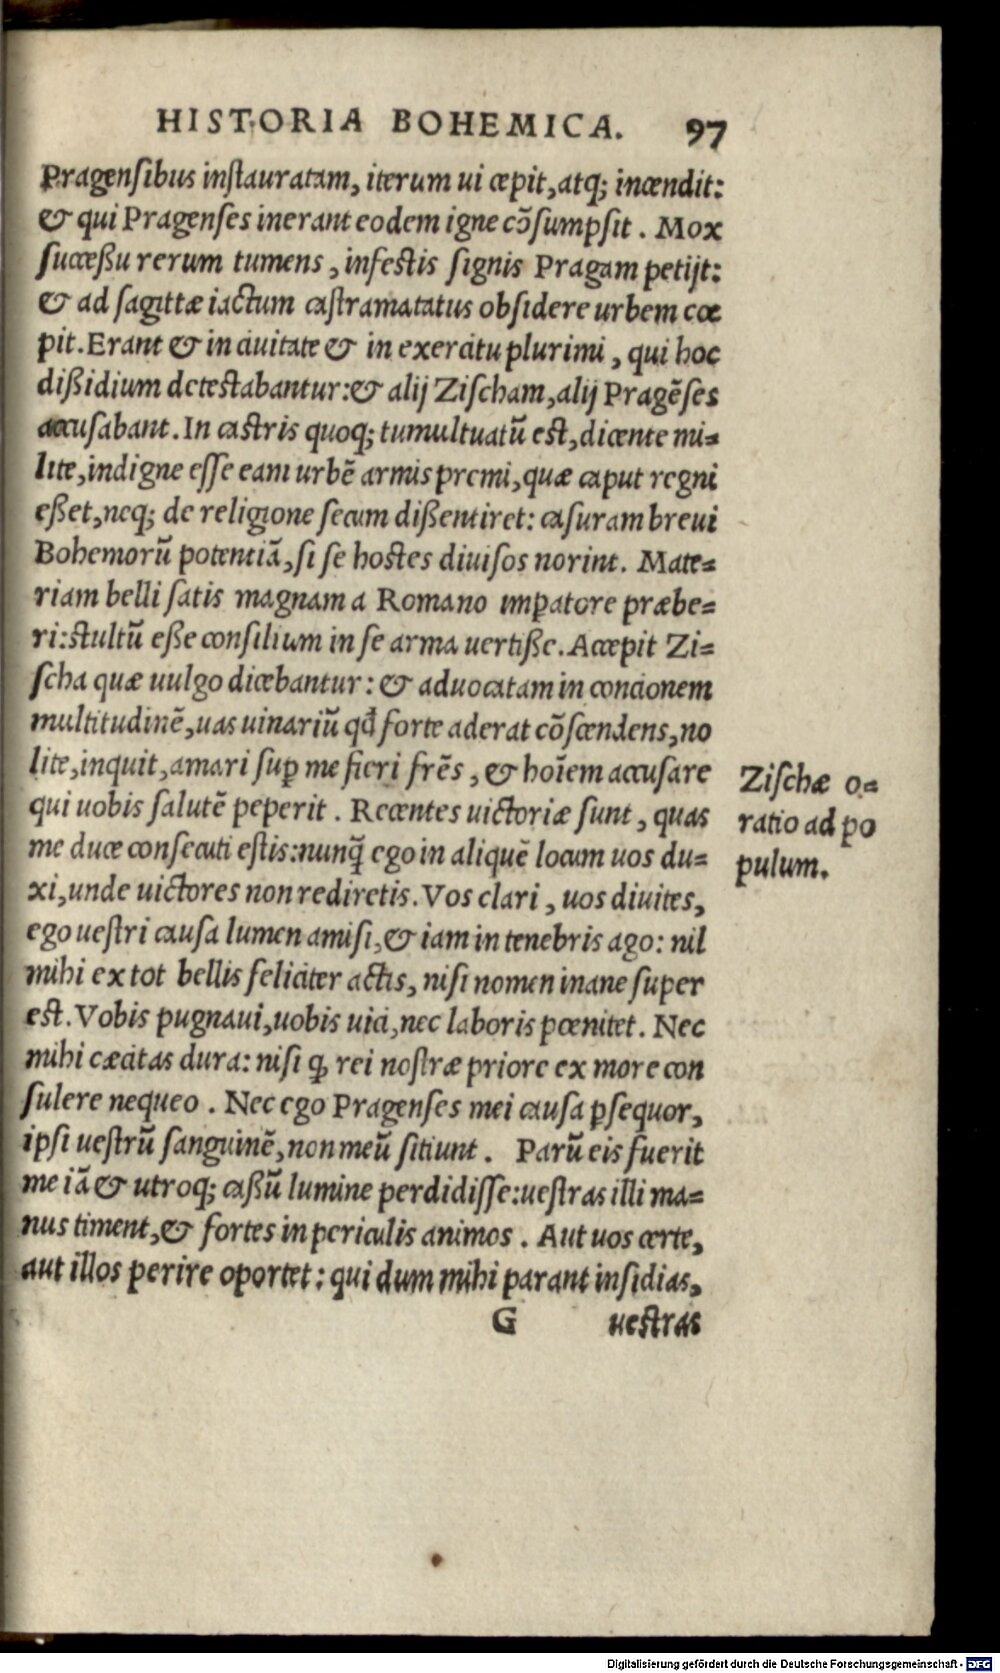 HISTORIA BOHEMICA. 97
Pragensibus instauratam, iterum ui cepit, atq; incendit:
& qui Pragenses inerant eodem igne cõsumpsit. Mox
successu rerum tumens, infestis signis Pragam petijt:
& ad sagittæ iactum castramatatus obsidere urbem cœ
pit. Erant & in ciuitate & in exercitu plurimi, qui hoc
dißidium detestabantur: & alij Zischam, alij Pragẽses
accusabant. In castris quoq; tumultuatũ est, dicente mi=
lite, indigne esse eam urbẽ armis premi, quæ caput regni
eßet, neq; de religione secum dißentiret: casuram breui
Bohemorũ potentiã, si se hostes diuisos norint. Mate=
riam belli satis magnam a Romano imꝑatore præbe=
ri: stultũ eße consilium in se arma uertiße. Accepit Zi=
scha quæ uulgo dicebantur: & aduocatam in concionem
multitudinẽ, uas uinariũ qđ forte aderat cõscendens, no
lite, inquit, amari suꝑ me fieri frẽs, & hoĩem accusare
qui uobis salutẽ peperit. Recentes uictoriæ sunt, quas
me duce consecuti estis: nunq̃ ego in aliquẽ locum uos du=
xi, unde uictores non rediretis. Vos clari, uos diuites,
ego uestri causa lumen amisi, & iam in tenebris ago: nil
mihi ex tot bellis feliciter actis, nisi nomen inane super
est. Vobis pugnaui, uobis uici, nec laboris pœnitet. Nec
mihi cæcitas dura: nisi ꝙ rei nostræ priore ex more con
sulere nequeo. Nec ego Pragenses mei causa ꝑsequor,
ipsi uestrũ sanguinẽ, non meũ sitiunt. Parũ eis fuerit
me iã & utroq; caßũ lumine perdidisse: uestras illi ma=
nus timent, & fortes in periculis animos. Aut uos certe,
aut illos perire oportet: qui dum mihi parant insidias,
G uestras
Zischæ o=
ratio ad po
pulum.
Digitalisierung gefördert durch die Deutsche Forschungsgemeinschaft - DFG